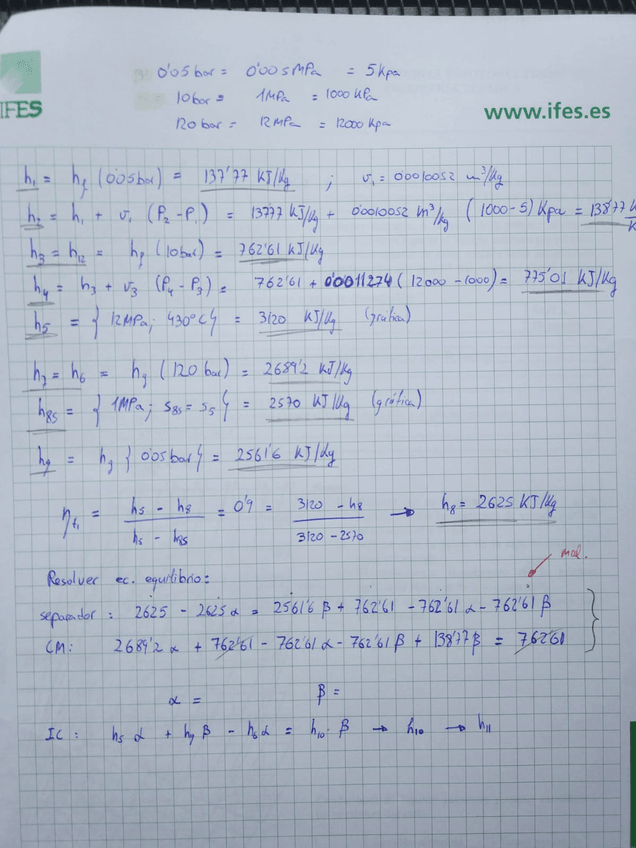 0'05 bar = 0'005 MPa = 5 Kpa
10 bar = 1 MPa = 1000 KPa
120 bar = 12 MPa = 12000 Kpa
IFES
www.ifes.es
h₁ = hf (0'05 bar) = 137'77 KJ/Kg ; v₁ = 0'0010052 m³/Kg
h₂ = h₁ + v₁ (P₂ - P₁) = 137'77 KJ/Kg + 0'0010052 m³/Kg (1000-5) Kpa = 138'77
h₃ = h₁₂ = hf (10 bar) = 762'61 KJ/Kg
h₄ = h₃ + v₃ (P₄ - P₃) = 762'61 + 0'0011274 (12000 - 1000) = 775'01 KJ/Kg
h₅ = { 12 MPa; 430°C } = 3120 KJ/Kg (grafica)
h₇ = h₆ = hg (120 bar) = 2689'2 KJ/Kg
h₈s = { 1 MPa ; s₈s = s₅ } = 2570 KJ/Kg (gráfica)
h₉ = hg { 0'05 bar } = 2561'6 KJ/Kg
ηt₁ = h₅ - h₈ / h₅ - h₈s = 0'9 = 3120 - h₈ / 3120 - 2570 → h₈ = 2625 KJ/Kg
mal.
Resolver ec. equilibrio:
separador : 2625 - 2625 α = 2561'6 β + 762'61 - 762'61 α - 762'61 β
CM: 2689'2 α + 762'61 - 762'61 α - 762'61 β + 138'77 β = 762'61
α = β =
IC : h₅ α + h₉ β - h₆ α = h₁₀ · β → h₁₀ → h₁₁